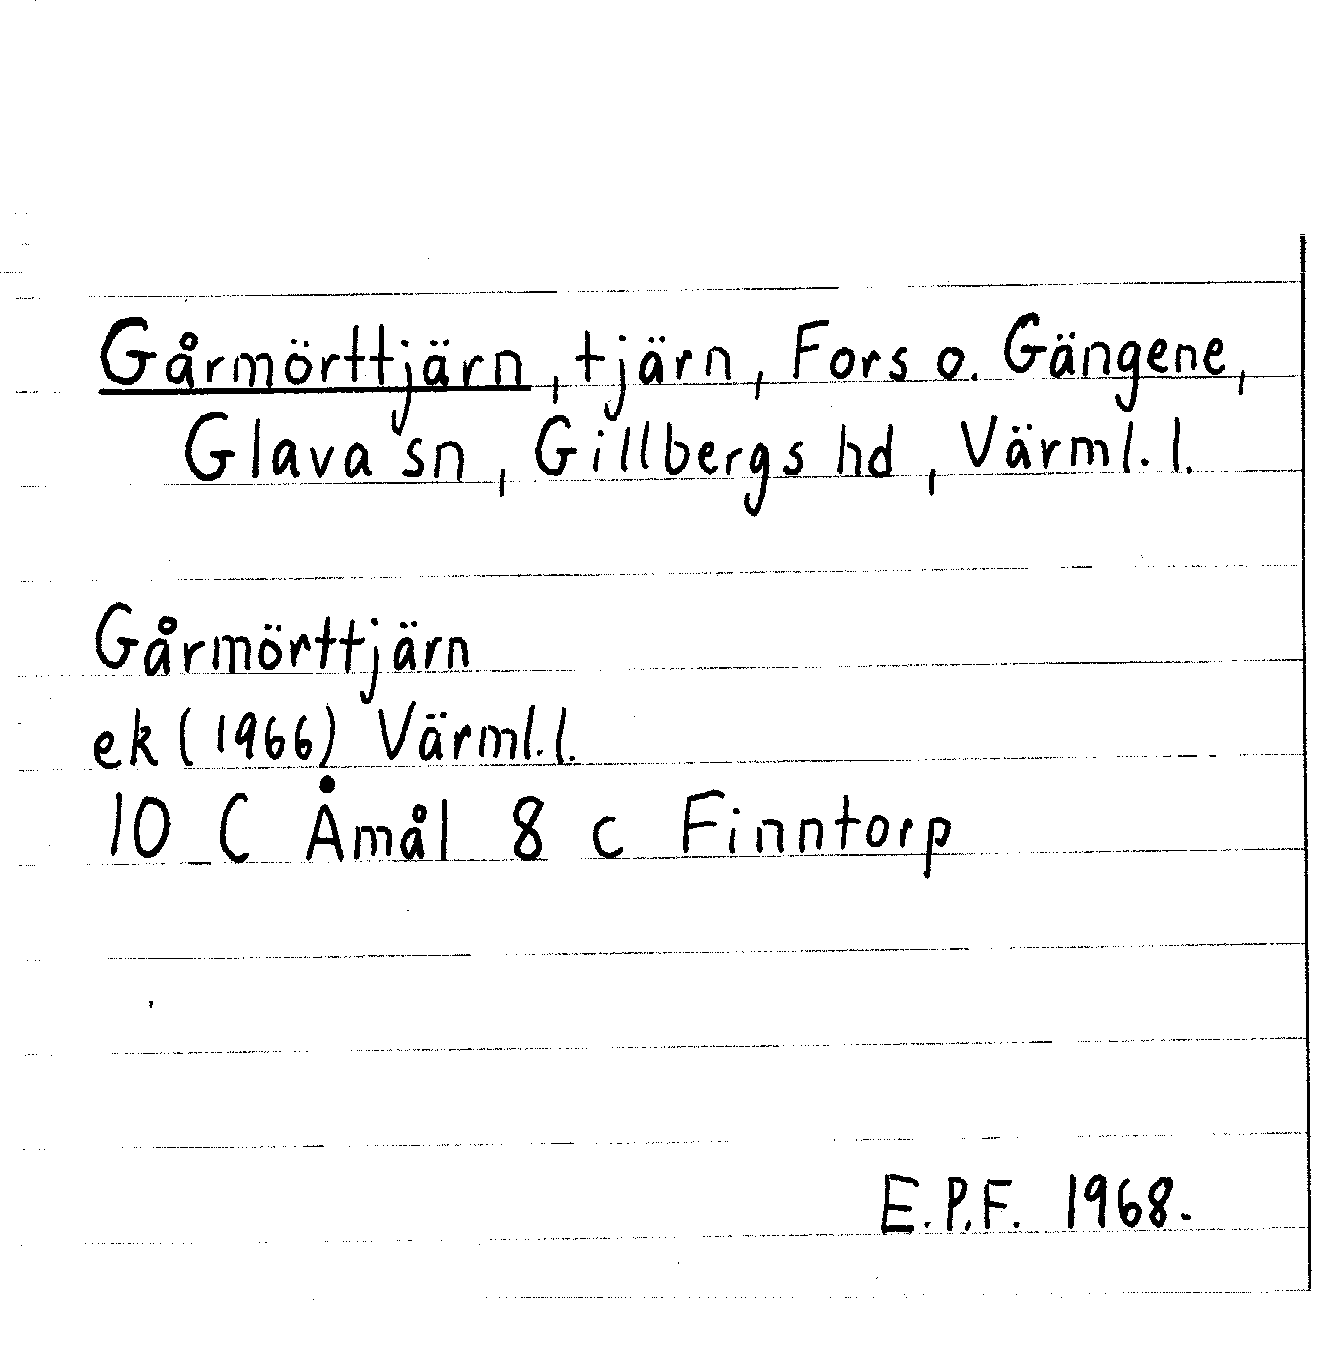 Gårmörttjärn, tjärn, Fors o. Gängene,
Glava sn, Gillbergs hd, Värml. l.
Gårmörttjärn
ek (1966) Värml. l.
10 C Åmål 8 c Finntorp
E.P.F. 1968.